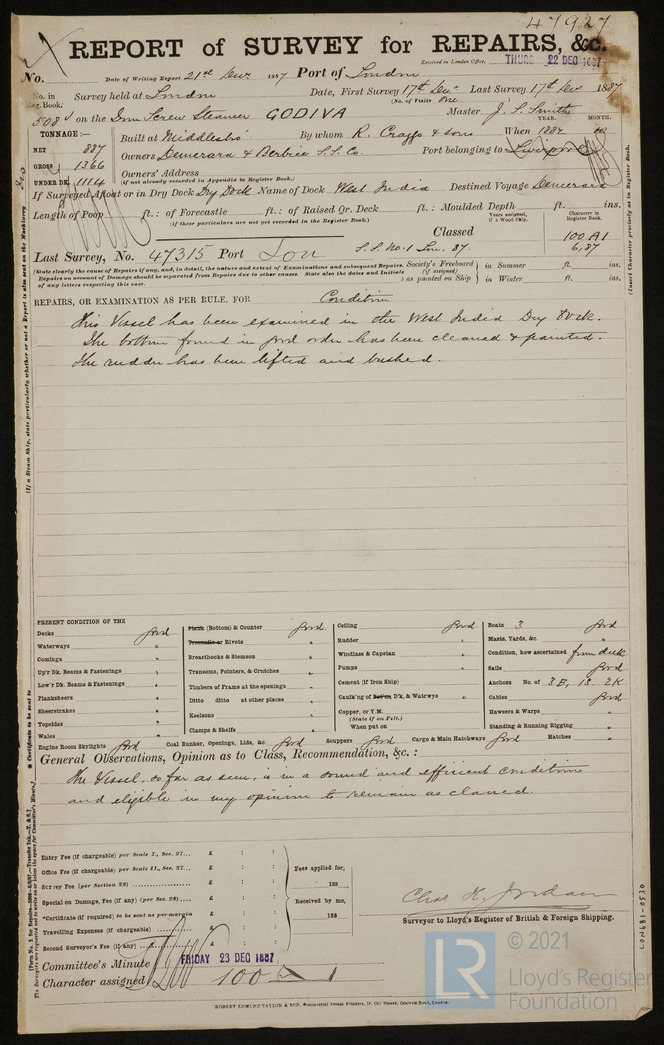 47927
REPORT of SURVEY for REPAIRS, &c.
Received in London Office, THURS 22 DEC 1887
No. Date of Writing Report 21st Decr 1887 Port of London
No. in Reg. Book. Survey held at London Date, First Survey 17th Dec Last Survey 17th Dec 1887
(No. of Visits one
508 on the Iron Screw Steamer GODIVA Master J. S. Smith
TONNAGE:— YEAR. MONTH.
NET 887 Built at Middlesbro' By whom R. Craggs & Sons When 1882 10
GROSS 1366 Owners Demerara & Berbice S.S. Co. Port belonging to Liverpool
UNDER DK. 1114 Owners' Address
(if not already recorded in Appendix to Register Book.)
If Surveyed Afloat or in Dry Dock Dry Dock Name of Dock West India Destined Voyage Demerara
Length of Poop ft.: of Forecastle ft.: of Raised Qr. Deck ft.: Moulded Depth ft. ins.
(if these particulars are not yet recorded in the Register Book.) Years assigned, if a Wood Ship. Character in Register Book.
Classed 100 A1
Last Survey, No. 47315 Port Lon S.S. No. 1 Lon. 87. 6,87
(State clearly the cause of Repairs if any, and, in detail, the nature and extent of Examinations and subsequent Repairs. Society's Freeboard in Summer ft. ins.
Repairs on account of Damage should be separated from Repairs due to other causes. State also the dates and Initials (if assigned)
of any letters respecting this case. as painted on Ship in Winter ft. ins.
REPAIRS, OR EXAMINATION AS PER RULE. FOR Condition
This Vessel has been examined in the West India Dry Dock.
The bottom found in good order has been cleaned & painted.
The rudder has been lifted and bushed.
PRESENT CONDITION OF THE
Decks good Plank (Bottom) & Counter good Ceiling good Boats 3 good
Waterways " Treenails or Rivets " Rudder " Masts, Yards, &c. "
Comings " Breasthooks & Stemson " Windlass & Capstan " Condition, how ascertained from deck
Up'r Dk. Beams & Fastenings " Transoms, Pointers, & Crutches " Pumps " Sails good
Low'r Dk. Beams & Fastenings " Timbers of Frame at the openings " Cement (if Iron Ship) " Anchors No. of 3B, 1S, 2K
Planksheers " Ditto ditto at other places " Caulk'ng of Bot'm, D'k, & Watrwys " Cables good
Sheerstrakes " Keelsons " Copper, or Y.M. Hawsers & Warps "
Topsides " (State if on Felt.) Standing & Running Rigging "
Wales " Clamps & Shelfs " When put on
Engine Room Skylights good Coal Bunker, Openings, Lids, &c. good Scuppers good Cargo & Main Hatchways good Hatches "
General Observations, Opinion as to Class, Recommendation, &c.:
The Vessel, so far as seen, is in a sound and efficient condition
and eligible in my opinion to remain as classed.
Entry Fee (if chargeable) per Scale I., Sec. 27... £ : :
Office Fee (if chargeable) per Scale II., Sec. 27... £ : : Fees applied for,
Survey Fee (per Section 28) £ : : 188
Special or Damage, Fee (if any) (per Sec. 28) £ : : Received by me,
*Certificate (if required) to be sent as per margin £ : : 188
Travelling Expenses (if chargeable) £ : :
Second Surveyor's Fee (if any) £ : :
Chas. H. Jordan
Surveyor to Lloyd's Register of British & Foreign Shipping.
Committee's Minute FRIDAY 23 DEC 1887
Character assigned 100 A 1
ROBERT EDMUND TAYLOR & SON, Commercial Steam Printers, 19, Old Street, Goswell Road, London.
LON681-0530
© 2021
LR
Lloyd's Register
Foundation